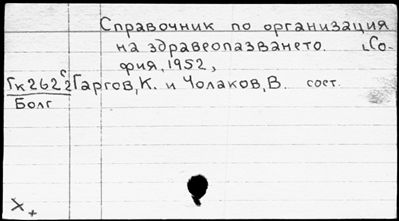 Справочник по организация
на здравеопазването. Со-
фия, 1952,
Гк262 с/2 Гаргов, К. и Чолаков, В. сост.
Болг
X +